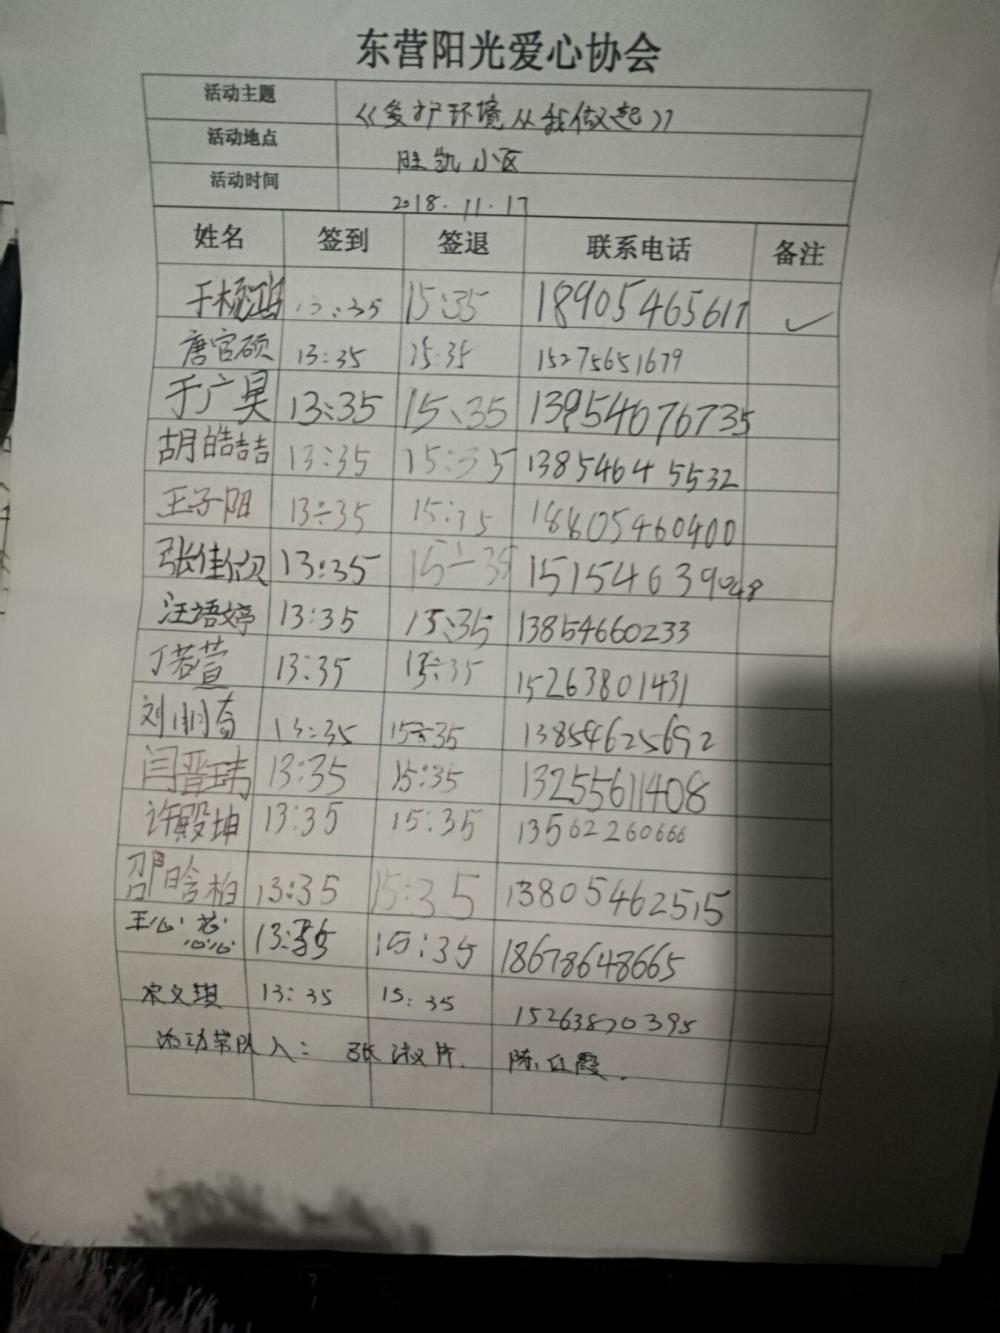 东营阳光爱心协会
活动主题 《爱护环境从我做起》
活动地点 胜凯小区
活动时间 2018.11.17
姓名 签到 签退 联系电话 备注
于杨鸿 13:35 15:35 18905465617 ✓
唐官硕 13:35 15:35 15275651679
于广昊 13:35 15:35 13954076735
胡皓喆 13:35 15:35 13854645532
王子阳 13:35 15:35 18805460400
张佳欣 13:35 15:35 15154639048
汪语婷 13:35 15:35 13854660233
丁若萱 13:35 15:35 15263801431
刘 13:35 15:35 13854625692
闫晋玮 13:35 15:35 13255611408
许殿坤 13:35 15:35 13562260666
邵晗柏 13:35 15:35 13805462515
王心蕊 13:35 15:35 18678648665
宋文琪 13:35 15:35 15263870395
活动带队人: 张淑 陈红霞.